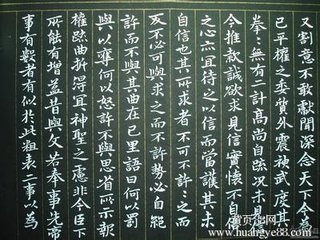 又割意不敢獻聞深念天下今
已平權之委質外震神武度其
拳々無有二計高尚自疏況未見
今推款誠欲求見信實懷不自信
之心亦宜待之以信而當護其未
自信也其所求者不可不許許之而
反不必可與求之而不許勢必自絕
許而不與其曲在己里語曰何以罰
與以奪何以怒許不與思省所示報
權疏曲折得宜宜神聖之慮非今臣下
所能有增益昔與文若奉事先帝
事有數者有似於此粗表二事以為
www.huangye88.com